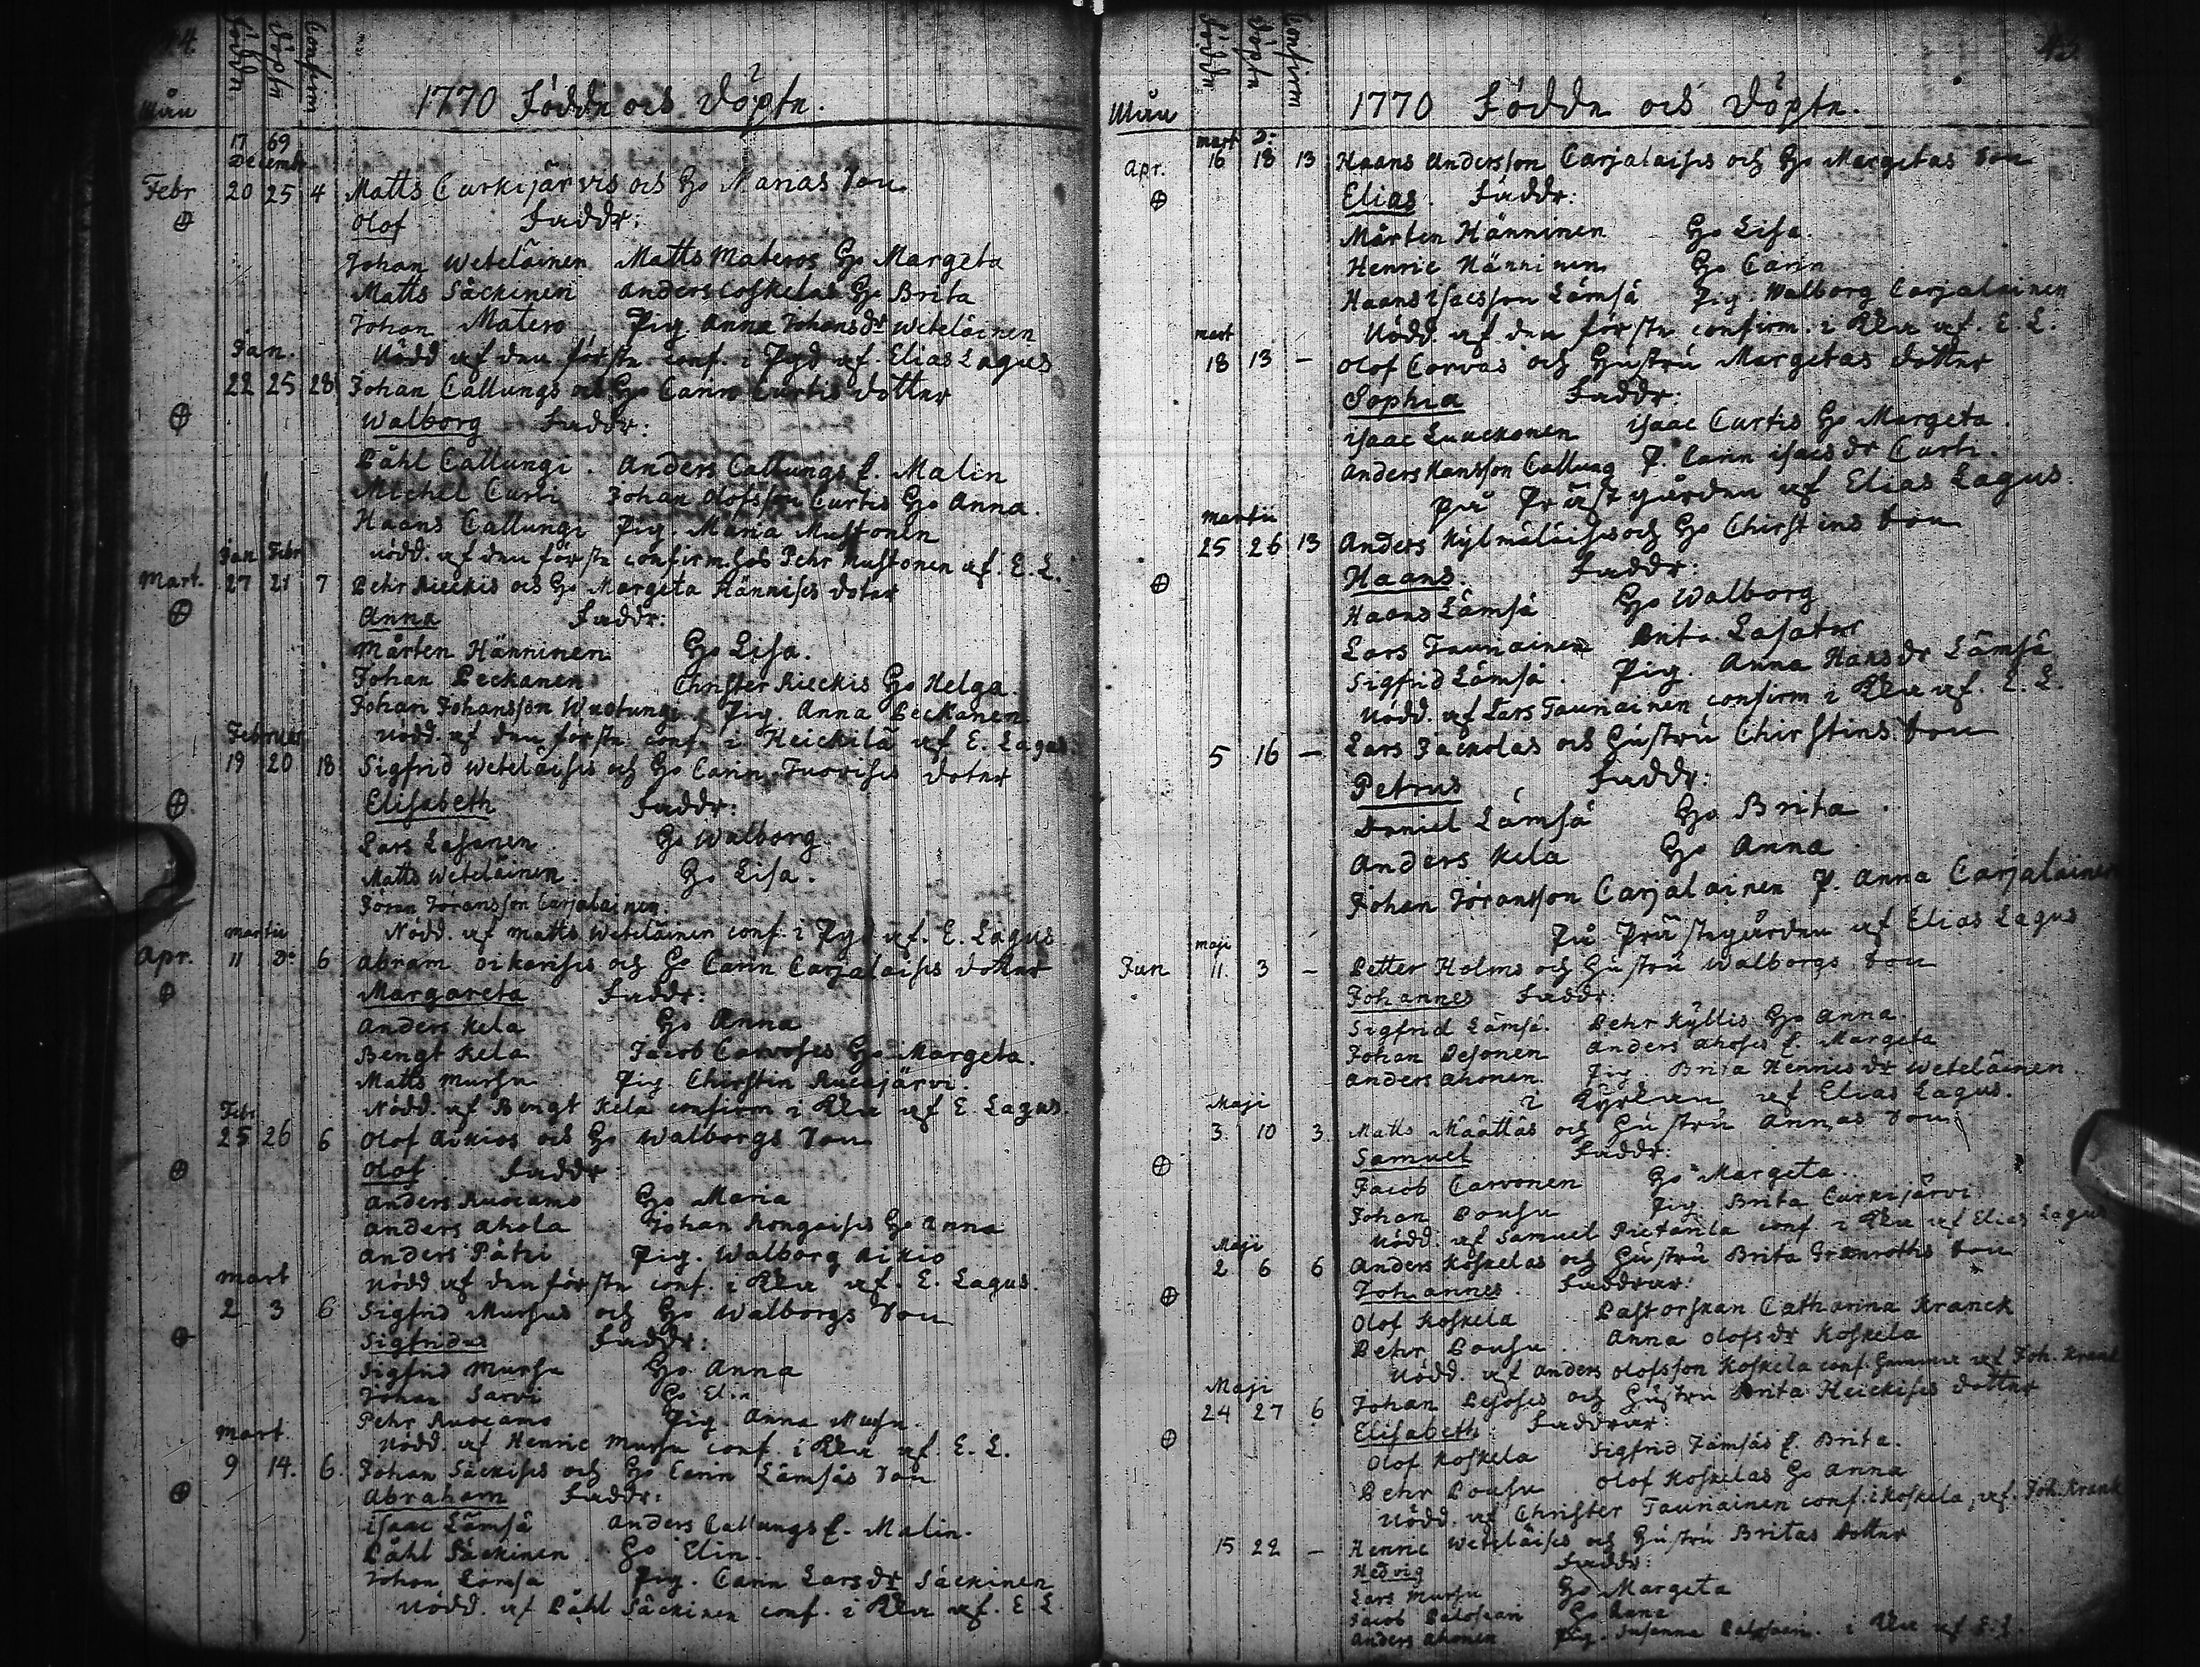 44
Födde Döpte Confirm
Mån 1770 Födde och Döpte.
17 69
Decembr
Febr 20 25 4 Matts Curkijärvis och Ho Marias Son
Olof Faddr:
Johan Weteläinen Matts Materos Ho Margeta
Matts Säckinen Anders Coskelas Ho Brita
Johan Matero Pig. Anna Johansdr Weteläinen
Nödd af den förste conf. i Pgd af Elias Lagus
Jan.
22 25 28 Johan Callungs och Ho Carin Curtis dotter
Walborg Faddr:
Påhl Callungi. Anders Callungs f. Malin
Michel Curti Johan Olofsson Curtis Ho Anna.
Haans Callungi Pig. Maria Mustonen
Nödd. af den förste confirm. hos Pehr Mustonen af. E. L.
Jan Febr
Mart. 27 21 7 Pehr Rieckis och Ho Margeta Hännises doter
Anna Faddr:
Mårten Hänninen Ho Lisa.
Johan Peckanen Christer Rieckis Ho Helga.
Johan Johansson Pig. Anna Peckanen
Nödd. af den förste conf. i Heickilä af E. Lagus
Februar
19 20 18 Sigfrid Weteläises och Ho Carin Tuorises doter
Elisabeth Faddr:
Lars Lasanen Ho Walborg
Matts Weteläinen. Ho Lisa.
Jöran Jöransson Carjalainen
Nödd. af Matts Weteläinen conf. i Pgd af. E. Lagus
Martii
Apr. 11 do 6 Abram Oikarises och Ho Carin Carjalaises dotter
Margareta Faddr:
Anders Kela Ho Anna
Bengt Kela Jacob Carvoses Ho Margeta.
Matts Mursu Pig. Chirstin Kurkijärvi.
Nödd. af Bengt Kela confirm i Kka af E. Lagus
Febr
25 26 6 Olof Aikios och Ho Walborgs Son
Olof Faddr
Anders Ruocamo Ho Maria
Anders Ahola Johan Kongaises Ho Anna
Anders Pätzi Pig. Walborg Aikio
Nödd af den förste conf. i Kka af. E. Lagus.
Mart
2 3 6 Sigfrid Mursus och Ho Walborgs Son
Sigfridus Faddr:
Sigfrid Mursu Ho Anna
Johan Sarvi Ho Elin
Pehr Ruocamo Pig. Anna Mursu
Nödd. af Henric Mursu conf. i Kka af. E. L.
Mart.
9 14. 6. Johan Säckises och Ho Carin Lämsäs Son
Abraham Faddr:
Isaac Lämsä Anders Callungs f. Malin.
Påhl Säckinen Ho Elin.
Johan Lämsä Pig. Carin Larsdr Säckinen
Nödd. af Påhl Säckinen conf. i Kka af. E. L
Födde Döpte Confirm
Mån 1770 Födde och Döpte.
Mart do
Apr. 16 18 13 Haans Andersson Carjalaises och Ho Margetas Son
Elias. Faddr:
Mårten Hänninen Ho Lisa.
Henric Hänninen Ho Carin
Haans Isacsson Lämsä Pig. Walborg Carjalainen
Nödd. af den förste confirm. i Kka af. E. L.
Mart
18 13 – Olof Corvas och Hustru Margetas dotter
Sophia Faddr:
Isaac Luuckonen Isaac Curtis Ho Margeta.
Anders Hansson Callung P. Carin Isacsdr Curti.
på Prästgården af Elias Lagus.
Martii
25 26 13 Anders Kylmäläises och Ho Chirstins Son
Haans. Faddr:
Haans Lämsä Ho Walborg
Lars Tauriainen Brita Lasatar
Sigfrid Lämsä. Pig. Anna Hansdr Lämsä
Nödd. af Lars Tauriainen confirm i Kka af. E. L.
5 16 – Lars Jackolas och Hustru Chirstins Son
Petrus Faddr:
Daniel Lämsä Ho Brita
Anders Kela Ho Anna
Johan Jöransson Carjalainen P. Anna Carjalainen
På Prästegården af Elias Lagus
Maji
Jun 11. 3 – Petter Holms och Hustru Walborgs Son
Johannes Faddr:
Sigfrid Lämsä. Pehr Kyllis Ho Anna.
Johan Pesonen Anders Ahoses f. Margeta
Anders Ahonen Pig. Brita Henricsdr Weteläinen.
i Kyrkan af Elias Lagus.
Maji
3. 10 3 Matts Määttäs och Hustru Annas Son
Samuel Faddr:
Jacob Carvonen Ho Margeta.
Johan Pousu Pig. Brita Curkijärvi
Nödd. af Samuel Pietarila conf. i Kka af Elias Lagus
Maji
2 6 6 Anders Koskelas och Hustru Brita Granroths Son
Johannes. Faddrar:
Olof Koskela Pastorskan Catharina Kranck
Pehr Pousu. Anna Olofsdr Koskela
Nödd. af Anders Olofsson Koskela conf. hemma af Joh. Kranck
Maji
24 27 6 Johan Pesoses och Hustru Brita Heickises dotter
Elisabeth Faddrar:
Olof Koskela Sigfrid Jämsäs f. Brita.
Pehr Pousu Olof Koskelas Ho Anna
Nödd. af Christer Tauriainen conf. i Koskela, af. Joh. Kranck
15 22 – Henric Weteläises och Hustru Britas dotter
Hedvig Faddr:
Lars Mursu Ho Margeta
Jacob Palosaari Ho Anna
Anders Ahonen Pig. Susanna Palosaari. i Kka af E. L.